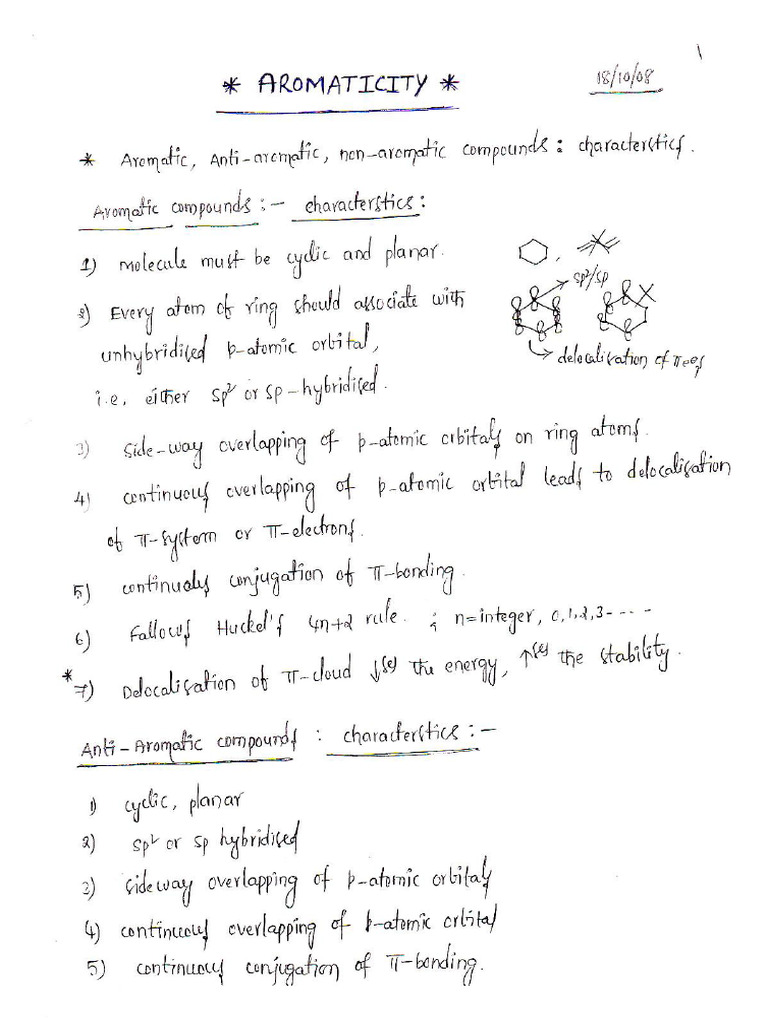 1
* AROMATICITY *
18/10/08
* Aromatic, Anti-aromatic, non-aromatic compounds : characterstics.
Aromatic compounds :- characterstics :
1) Molecule must be cyclic and planar.
2) Every atom of ring should associate with
unhybridised p-atomic orbital,
i.e, either sp² or sp-hybridised.
sp²/sp
delocalisation of π e⊖s
3) side-way overlapping of p-atomic orbitals on ring atoms.
4) continuous overlapping of p-atomic orbital leads to delocalisation
of π-system or π-electrons.
5) continualy conjugation of π-bonding.
6) Fallows Huckel's 4n+2 rule. ; n=integer, 0,1,2,3----
* 7) Delocalisation of π-cloud ↓(se) the energy, ↑(se) the stability.
Anti-Aromatic compounds : characterstics :-
1) cyclic, planar
2) sp² or sp hybridised
3) sideway overlapping of p-atomic orbitals
4) continuous overlapping of p-atomic orbital
5) continuous conjugation of π-bonding.